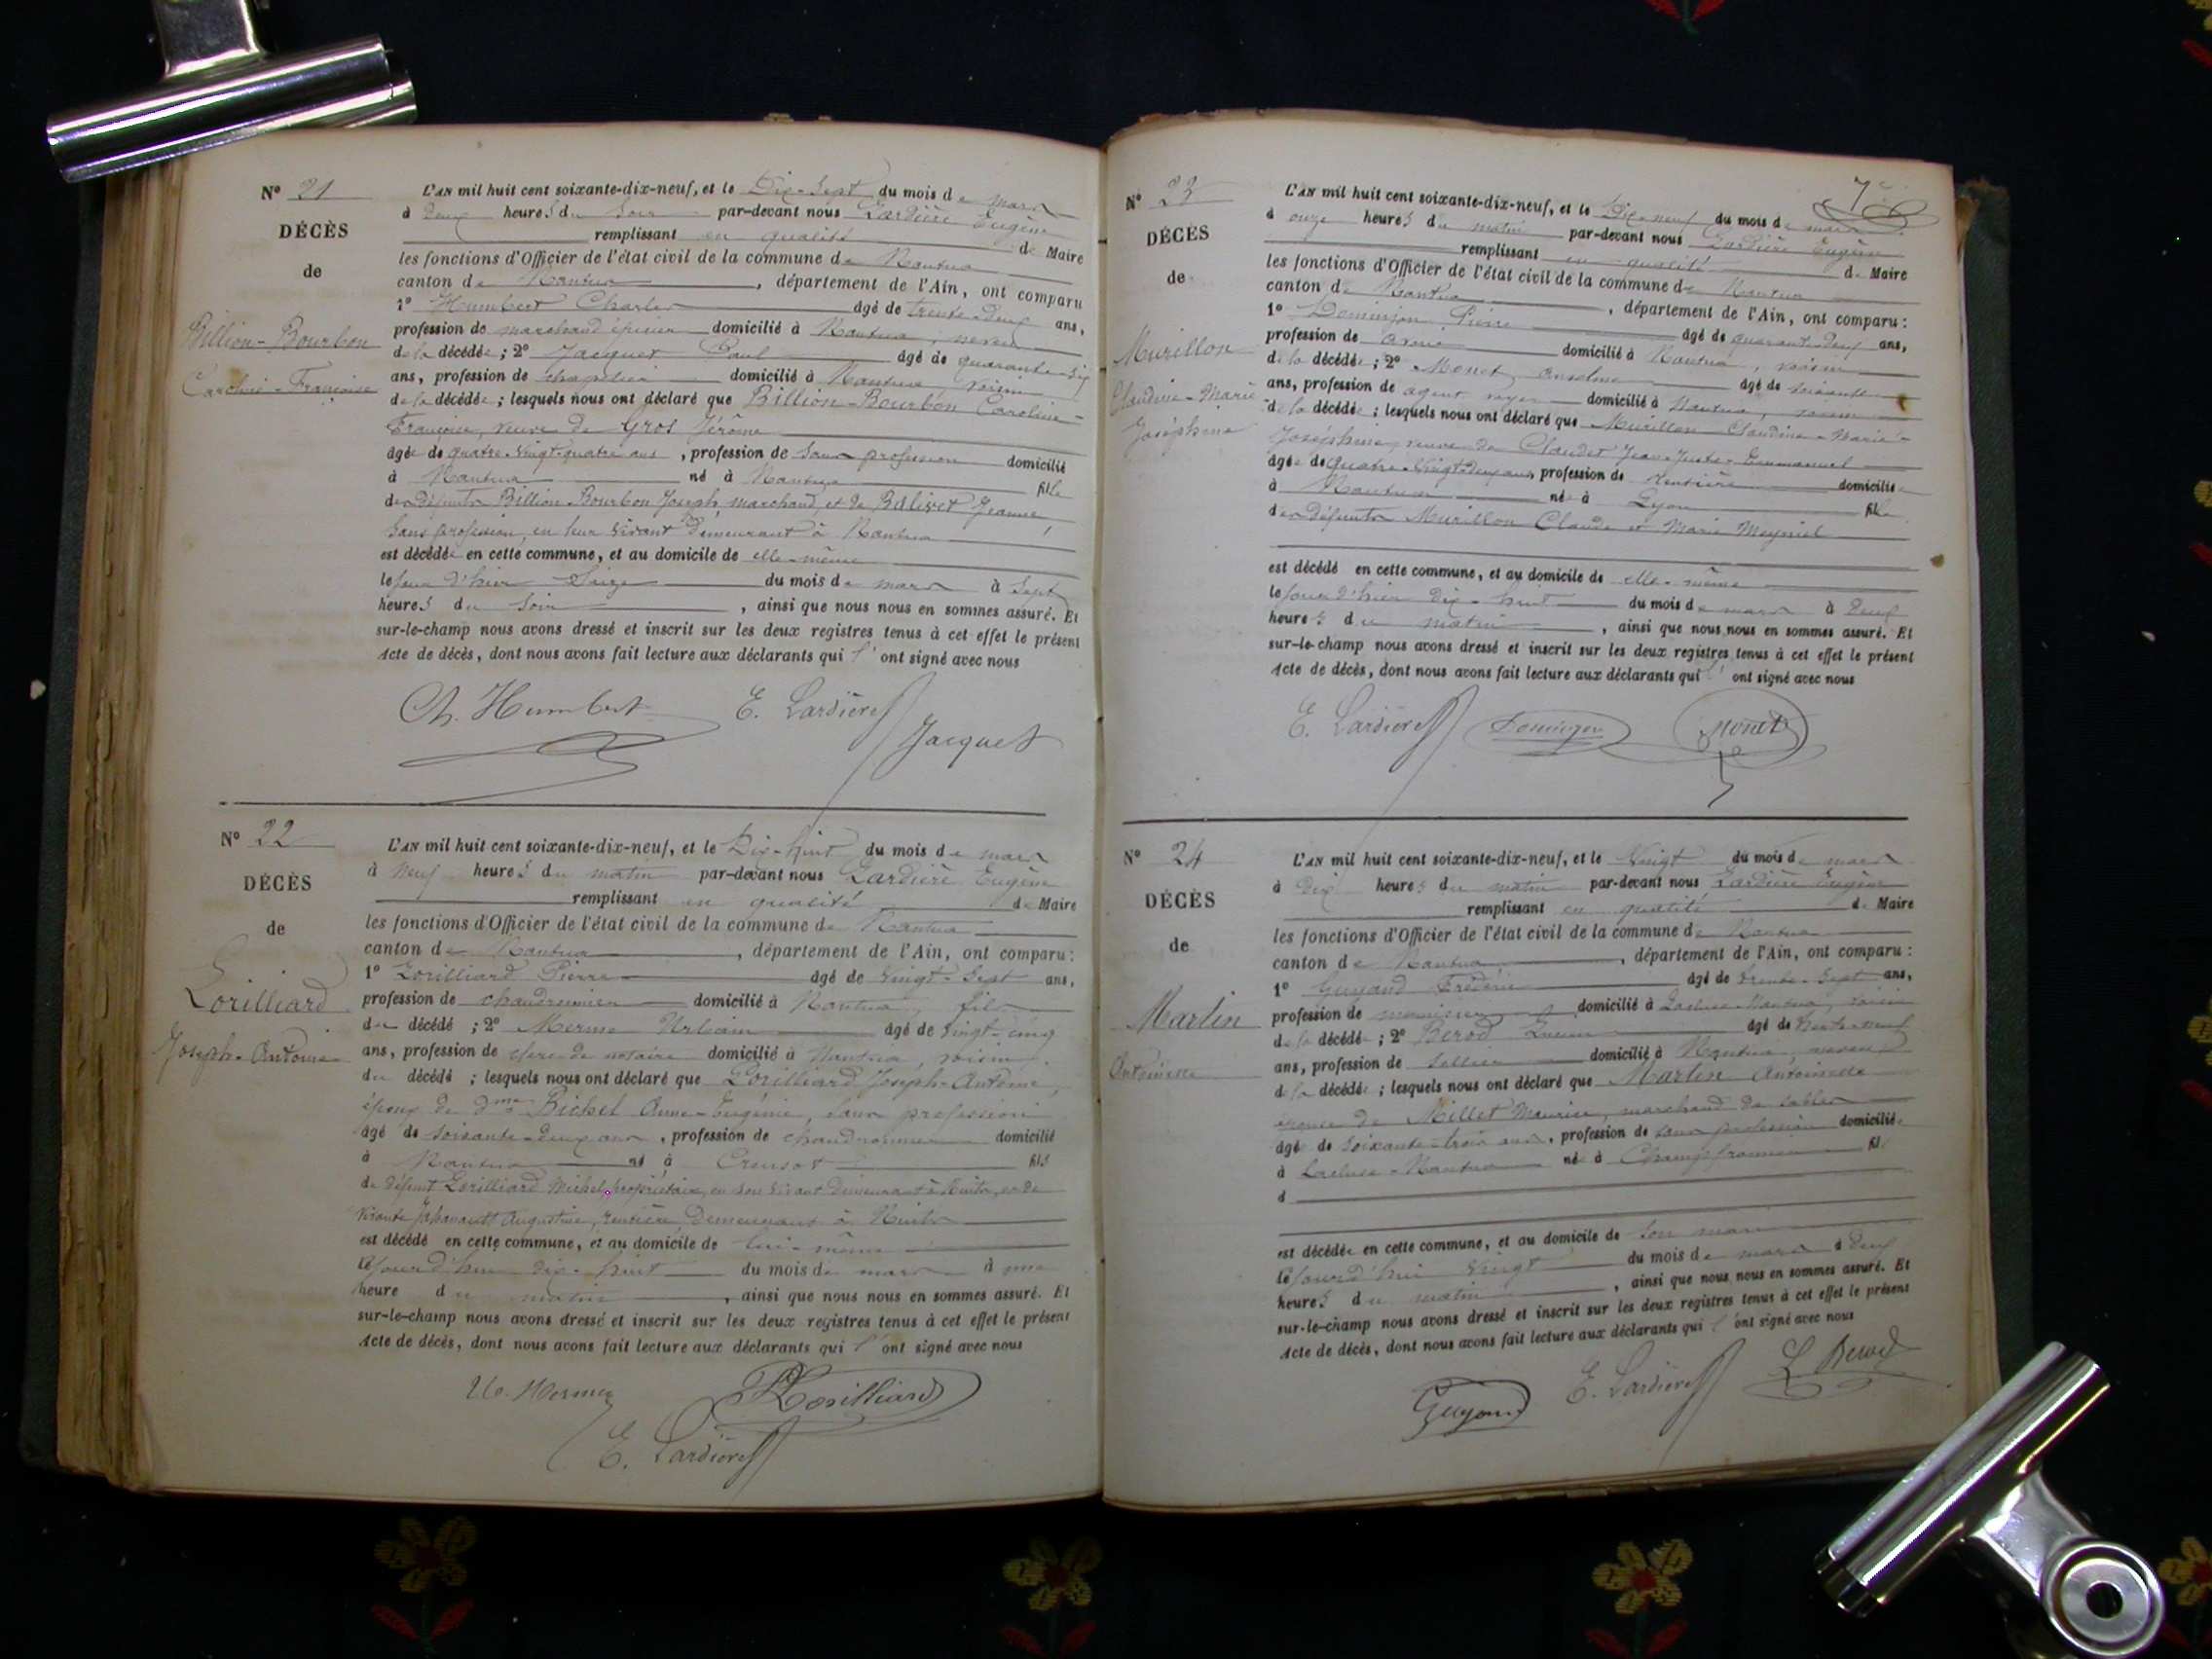 N° 21
DÉCÈS
de
Billion-Bourbon
Caroline-Françoise
L'AN mil huit cent soixante-dix-neuf, et le Dix-Sept du mois de mars
à Deux heures du Soir par-devant nous Lardière Eugène
remplissant en qualité de Maire
les fonctions d'Officier de l'état civil de la commune de Nantua
canton de Nantua, département de l'Ain, ont comparu
1° Humbert Charles âgé de trente-deux ans,
profession de marchand épicier domicilié à Nantua, neveu
de la décédée ; 2° Jacquet Paul âgé de quarante-six
ans, profession de chapelier domicilié à Nantua, voisin
de la décédée ; lesquels nous ont déclaré que Billion-Bourbon Caroline-
Françoise, veuve de Gros Jérôme
âgée de quatre-vingt-quatre ans, profession de sans profession domicilié
à Nantua né à Nantua fille
des défunts Billion-Bourbon Joseph, marchand, et de Balivet Jeanne,
sans profession, en leur vivant demeurant à Nantua
est décédée en cette commune, et au domicile de elle-même
le jour d'hier Seize du mois de mars à Sept
heures du Soir, ainsi que nous nous en sommes assuré. Et
sur-le-champ nous avons dressé et inscrit sur les deux registres tenus à cet effet le présent
Acte de décès, dont nous avons fait lecture aux déclarants qui l'ont signé avec nous
Ch. Humbert E. Lardière Jacquet
N° 22
DÉCÈS
de
Lorilliard
Joseph-Antoine
L'AN mil huit cent soixante-dix-neuf, et le Dix-huit du mois de mars
à Neuf heures du matin par-devant nous Lardière Eugène
remplissant en qualité de Maire
les fonctions d'Officier de l'état civil de la commune de Nantua
canton de Nantua, département de l'Ain, ont comparu :
1° Lorilliard Pierre âgé de vingt-sept ans,
profession de chaudronnier domicilié à Nantua, fils
du décédé ; 2° Mermo Urbain âgé de vingt-cinq
ans, profession de clerc de notaire domicilié à Nantua, voisin
du décédé ; lesquels nous ont déclaré que Lorilliard Joseph-Antoine,
époux de dme Bichel Anne-Eugénie, sans profession
âgé de soixante-deux ans, profession de chaudronnier domicilié
à Nantua né à Creusot fils
de défunt Lorilliard Michel, propriétaire, en son vivant demeurant à Nuits, et de
vivante Augustine, rentière, demeurant à Nuits
est décédé en cette commune, et au domicile de lui-même
le jourd'hui dix-huit du mois de mars à une
heure du matin, ainsi que nous nous en sommes assuré. Et
sur-le-champ nous avons dressé et inscrit sur les deux registres tenus à cet effet le présent
Acte de décès, dont nous avons fait lecture aux déclarants qui l'ont signé avec nous
U. Mermo P Lorilliard
E. Lardière
7e
N° 23
DÉCÈS
de
Murillon
Claudine-Marie
Joséphine
L'AN mil huit cent soixante-dix-neuf, et le Dix-neuf du mois de mars
à onze heures du matin par-devant nous Lardière Eugène
remplissant en qualité de Maire
les fonctions d'Officier de l'état civil de la commune de Nantua
canton de Nantua, département de l'Ain, ont comparu :
1° Dominjon Pierre âgé de quarante-deux ans,
profession de domicilié à Nantua, voisin
de la décédée ; 2° Monet Anselme âgé de soixante
ans, profession de agent voyer domicilié à Nantua, voisin
de la décédée ; lesquels nous ont déclaré que Murillon Claudine-Marie-
Joséphine, veuve de Claudet Jean-Juste-Emmanuel
âgée de quatre-vingt-deux ans, profession de rentière domiciliée
à Nantua née à Lyon fille
des défunts Murillon Claude et Marie Meyniel
est décédé en cette commune, et au domicile de elle-même
le jour d'hier dix-huit du mois de mars à Deux
heures du matin, ainsi que nous nous en sommes assuré. Et
sur-le-champ nous avons dressé et inscrit sur les deux registres tenus à cet effet le présent
Acte de décès, dont nous avons fait lecture aux déclarants qui l'ont signé avec nous
E. Lardière Dominjon Monet
N° 24
DÉCÈS
de
Martin
Antoinette
L'AN mil huit cent soixante-dix-neuf, et le Vingt du mois de mars
à Dix heures du matin par-devant nous Lardière Eugène
remplissant en qualité de Maire
les fonctions d'Officier de l'état civil de la commune de Nantua
canton de Nantua, département de l'Ain, ont comparu :
1° Guyand Frédéric âgé de trente-sept ans,
profession de menuisier domicilié à Lacluse-Nantua, voisin
de la décédée ; 2° Berod âgé de trente-neuf
ans, profession de sellier domicilié à Nantua, neveu
de la décédée ; lesquels nous ont déclaré que Martin Antoinette
épouse de Millet Maurice, marchand de sables
âgé de soixante-trois ans, profession de sans profession domiciliée
à Lacluse-Nantua née à Champfromier fil
d
est décédée en cette commune, et au domicile de son mari
le jourd'hui vingt du mois de mars à Deux
heures du matin, ainsi que nous nous en sommes assuré. Et
sur-le-champ nous avons dressé et inscrit sur les deux registres tenus à cet effet le présent
Acte de décès, dont nous avons fait lecture aux déclarants qui l'ont signé avec nous
Guyand E. Lardière L Berod